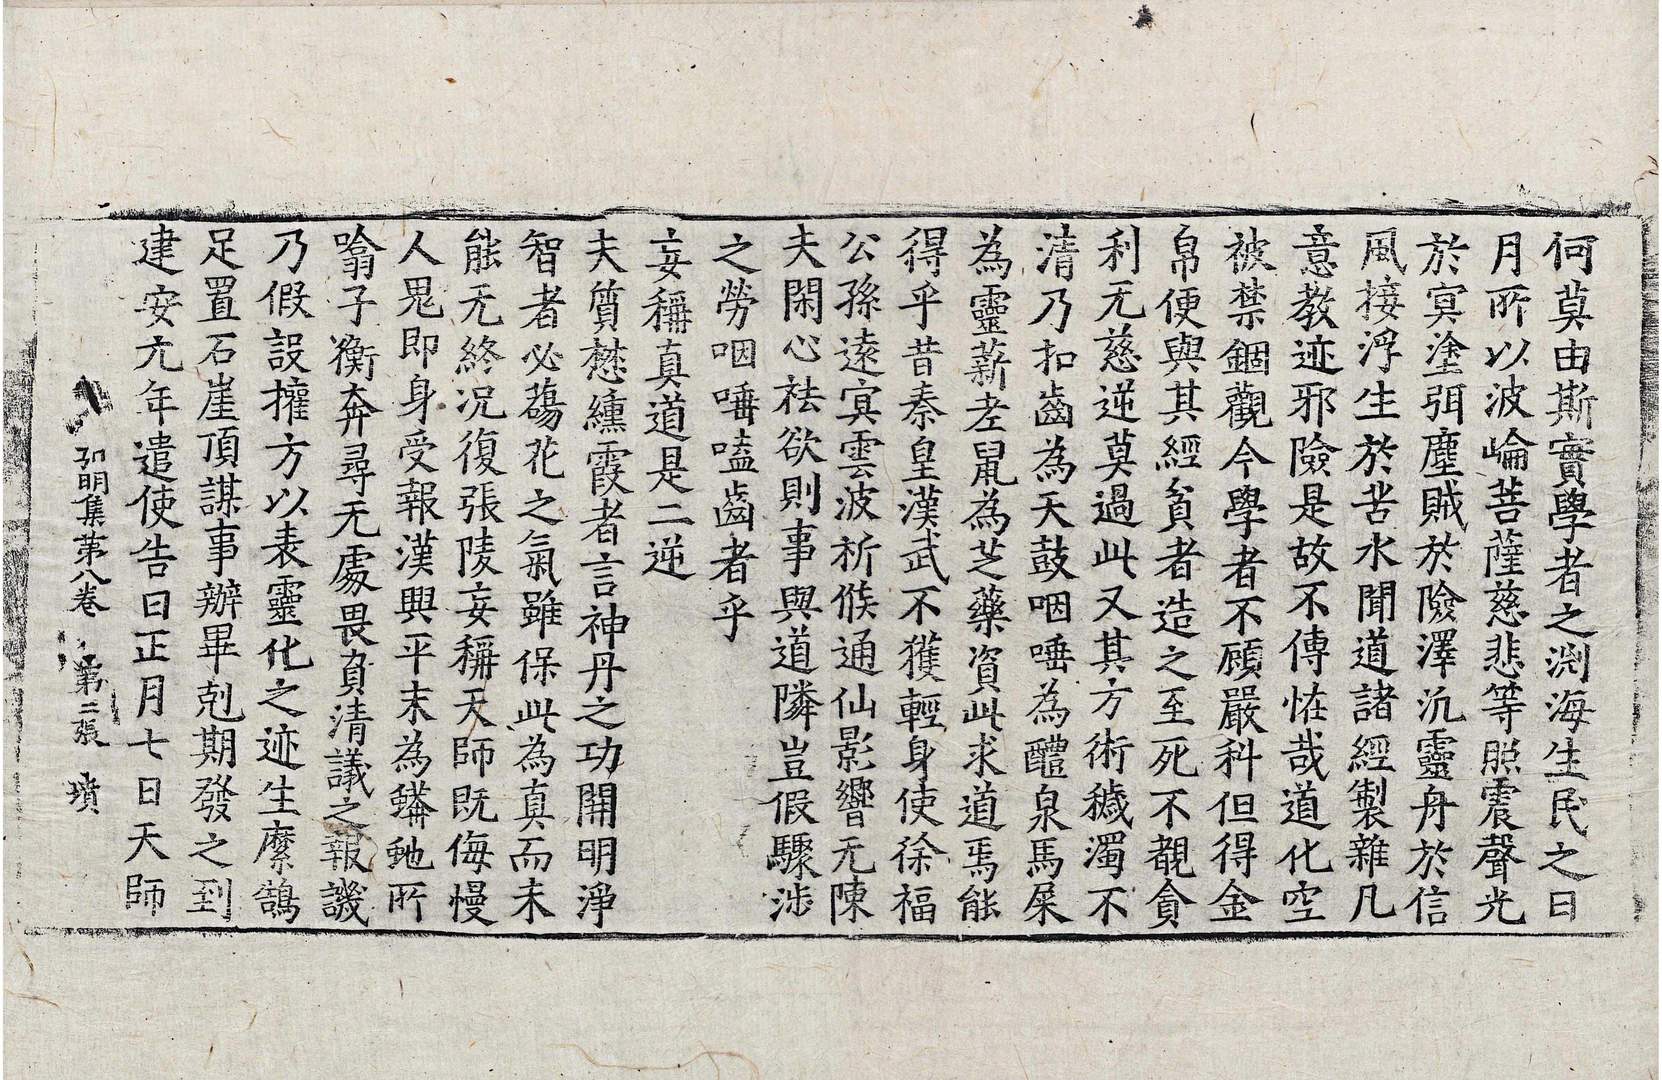 何莫由斯實學者之淵海生民之日
月所以波崘菩薩慈悲等照震聲光
於冥塗弭塵賊於險澤汎靈舟於信
風接浮生於苦水聞道諸經製雜凡
意教迹邪險是故不傳怪哉道化空
被禁錮觀今學者不顧嚴科但得金
帛便與其經貧者造之至死不覩貪
利无慈逆莫過此又其方術穢濁不
清乃扣齒為天鼓咽唾為醴泉馬屎
為靈薪老鼠為芝藥資此求道焉能
得乎昔秦皇漢武不獲輕身使徐福
公孫遠冥雲波祈候通仙影響无陳
夫閑心祛欲則事與道隣豈假驟涉
之勞咽唾嗑齒者乎
妄稱真道是二逆
夫質懋纁霞者言神丹之功開明淨
智者必蘂花之氣雖保此為真而未
能无終况復張陵妄稱天師既侮慢
人鬼即身受報漢興平末為蟒虵所
噏子衡奔尋无處畏負清議之報譏
乃假設權方以表靈化之迹生縻鵠
足置石崖頂謀事辦畢剋期發之到
建安元年遣使告曰正月七日天師
弘明集第八卷 第二張 墳